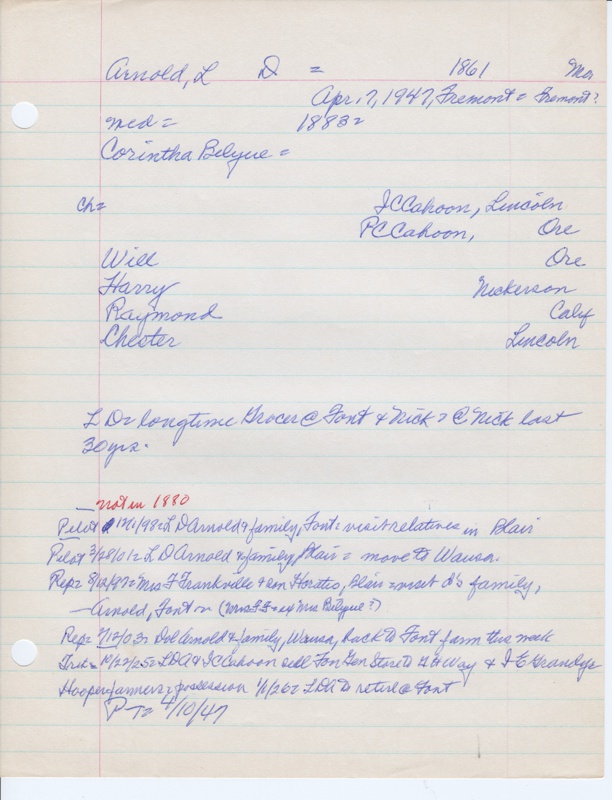 Arnold, L D = 1861 Mo
Apr. 7, 1947, Fremont = Fremont?
md = 1883 =
Corintha Belyue =
Ch= J C Cahoon, Lincoln
P C Cahoon, Ore
Will Ore
Harry Nickerson
Raymond Calif
Chester Lincoln
L D = longtime Grocer @ Font & Nick = @ Nick last
30 yrs.
— not in 1880
Pilot /98 = L D Arnold & family, Font = visit relatives in Blair
Pilot 3/28/01 = L D Arnold & family, Blair = move to Wausa.
Rep = 8/ = Mrs F Frankville & son Horatio, Blair = visit d's family,
— Arnold, Font (Mrs F F = ex Mrs Belyue?)
Rep = 7/12/03 = Arnold & family, Wausa, back to Font farm this week
Trib = 10/22/25 = LDA & J C Cahoon sell Fon Gen Store to Way & J E
Hooper farmers, possession 1/1/26 = LDA to retire @ Font
P T = 4/10/47